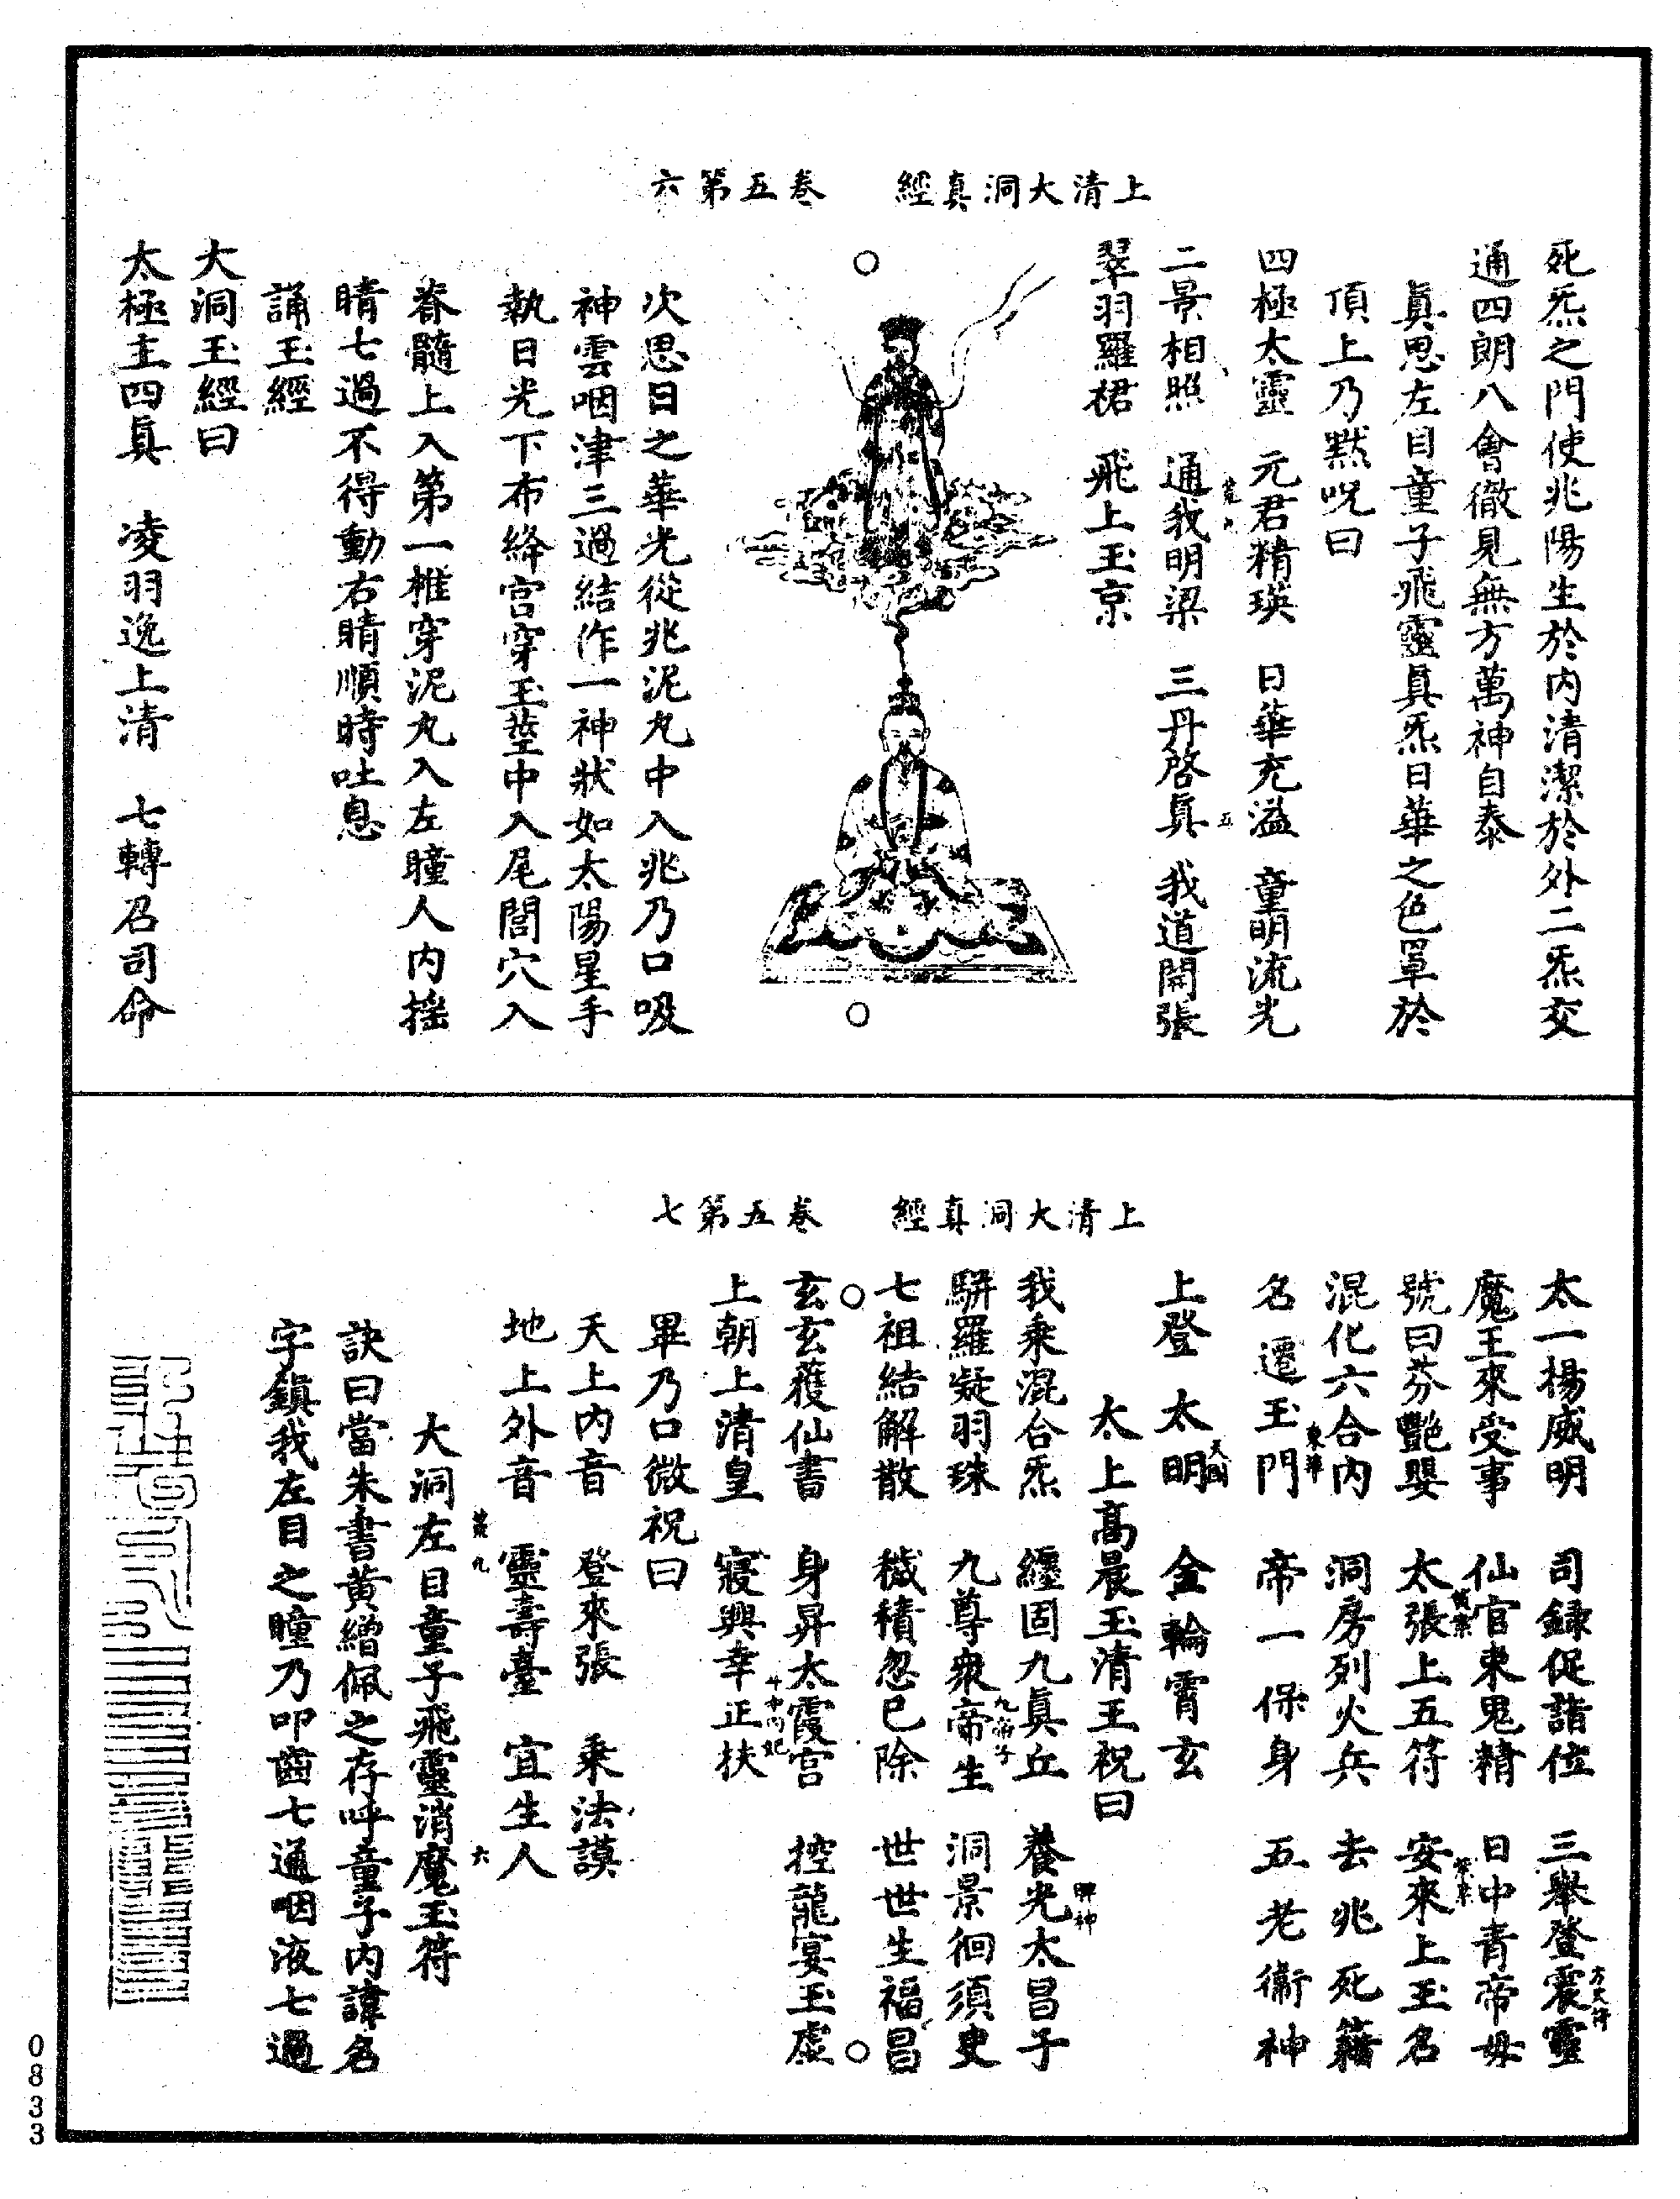 上清大洞真經　卷五第六
死炁之門使兆陽生於内清潔於外二炁交
通四朗八會徹見無方萬神自泰
真思左目童子飛靈真炁日華之色罩於
頂上乃黙呪曰
四極太靈　元君精瑛　日華充溢　童明流光
二景相照　通我明梁　三丹啓真　我道開張
翠羽羅裙　飛上玉京
次思日之華光從兆泥丸中入兆乃口吸
神雲咽津三過結作一神狀如太陽星手
執日光下布絳宫穿玉莖中入尾閭穴入
脊髓上入第一椎穿泥丸入左瞳人内揺
睛七過不得動右睛順時吐息
誦玉經
大洞玉經曰
太極主四真　凌羽逸上清　七轉召司命
上清大洞真經　卷五第七
太一揚威明　司録促詣位　三舉登震靈
方丈臺
魔王來受事　仙官束鬼精　日中青帝母
號曰芬艷嬰　太張上五符　安來上玉名
混化六合内　洞房列火兵　去兆死籍
名　遷玉門　帝一保身　五老衛神
東華
上登太明　金輪霄玄
天國
太上高晨玉清王祝曰
我乘混合炁　纒固九真丘　養光太昌子
脾神
駢羅凝羽珠　九尊衆帝生　洞景徊須臾
九帝子
七祖結解散　穢積忽已除　世世生福昌
玄玄蔭仙書　身昇太霞宫　控龍宴玉虚
上朝上清皇　寢興幸正扶
畢乃口微祝曰
天上内音　登來張　乘法謨
地上外音　靈壽臺　宜生人
大洞左目童子飛靈消魔玉符
訣曰當朱書黄繒佩之存呼童子内諱名
字鎮我左目之瞳乃叩齒七通咽液七過
0833